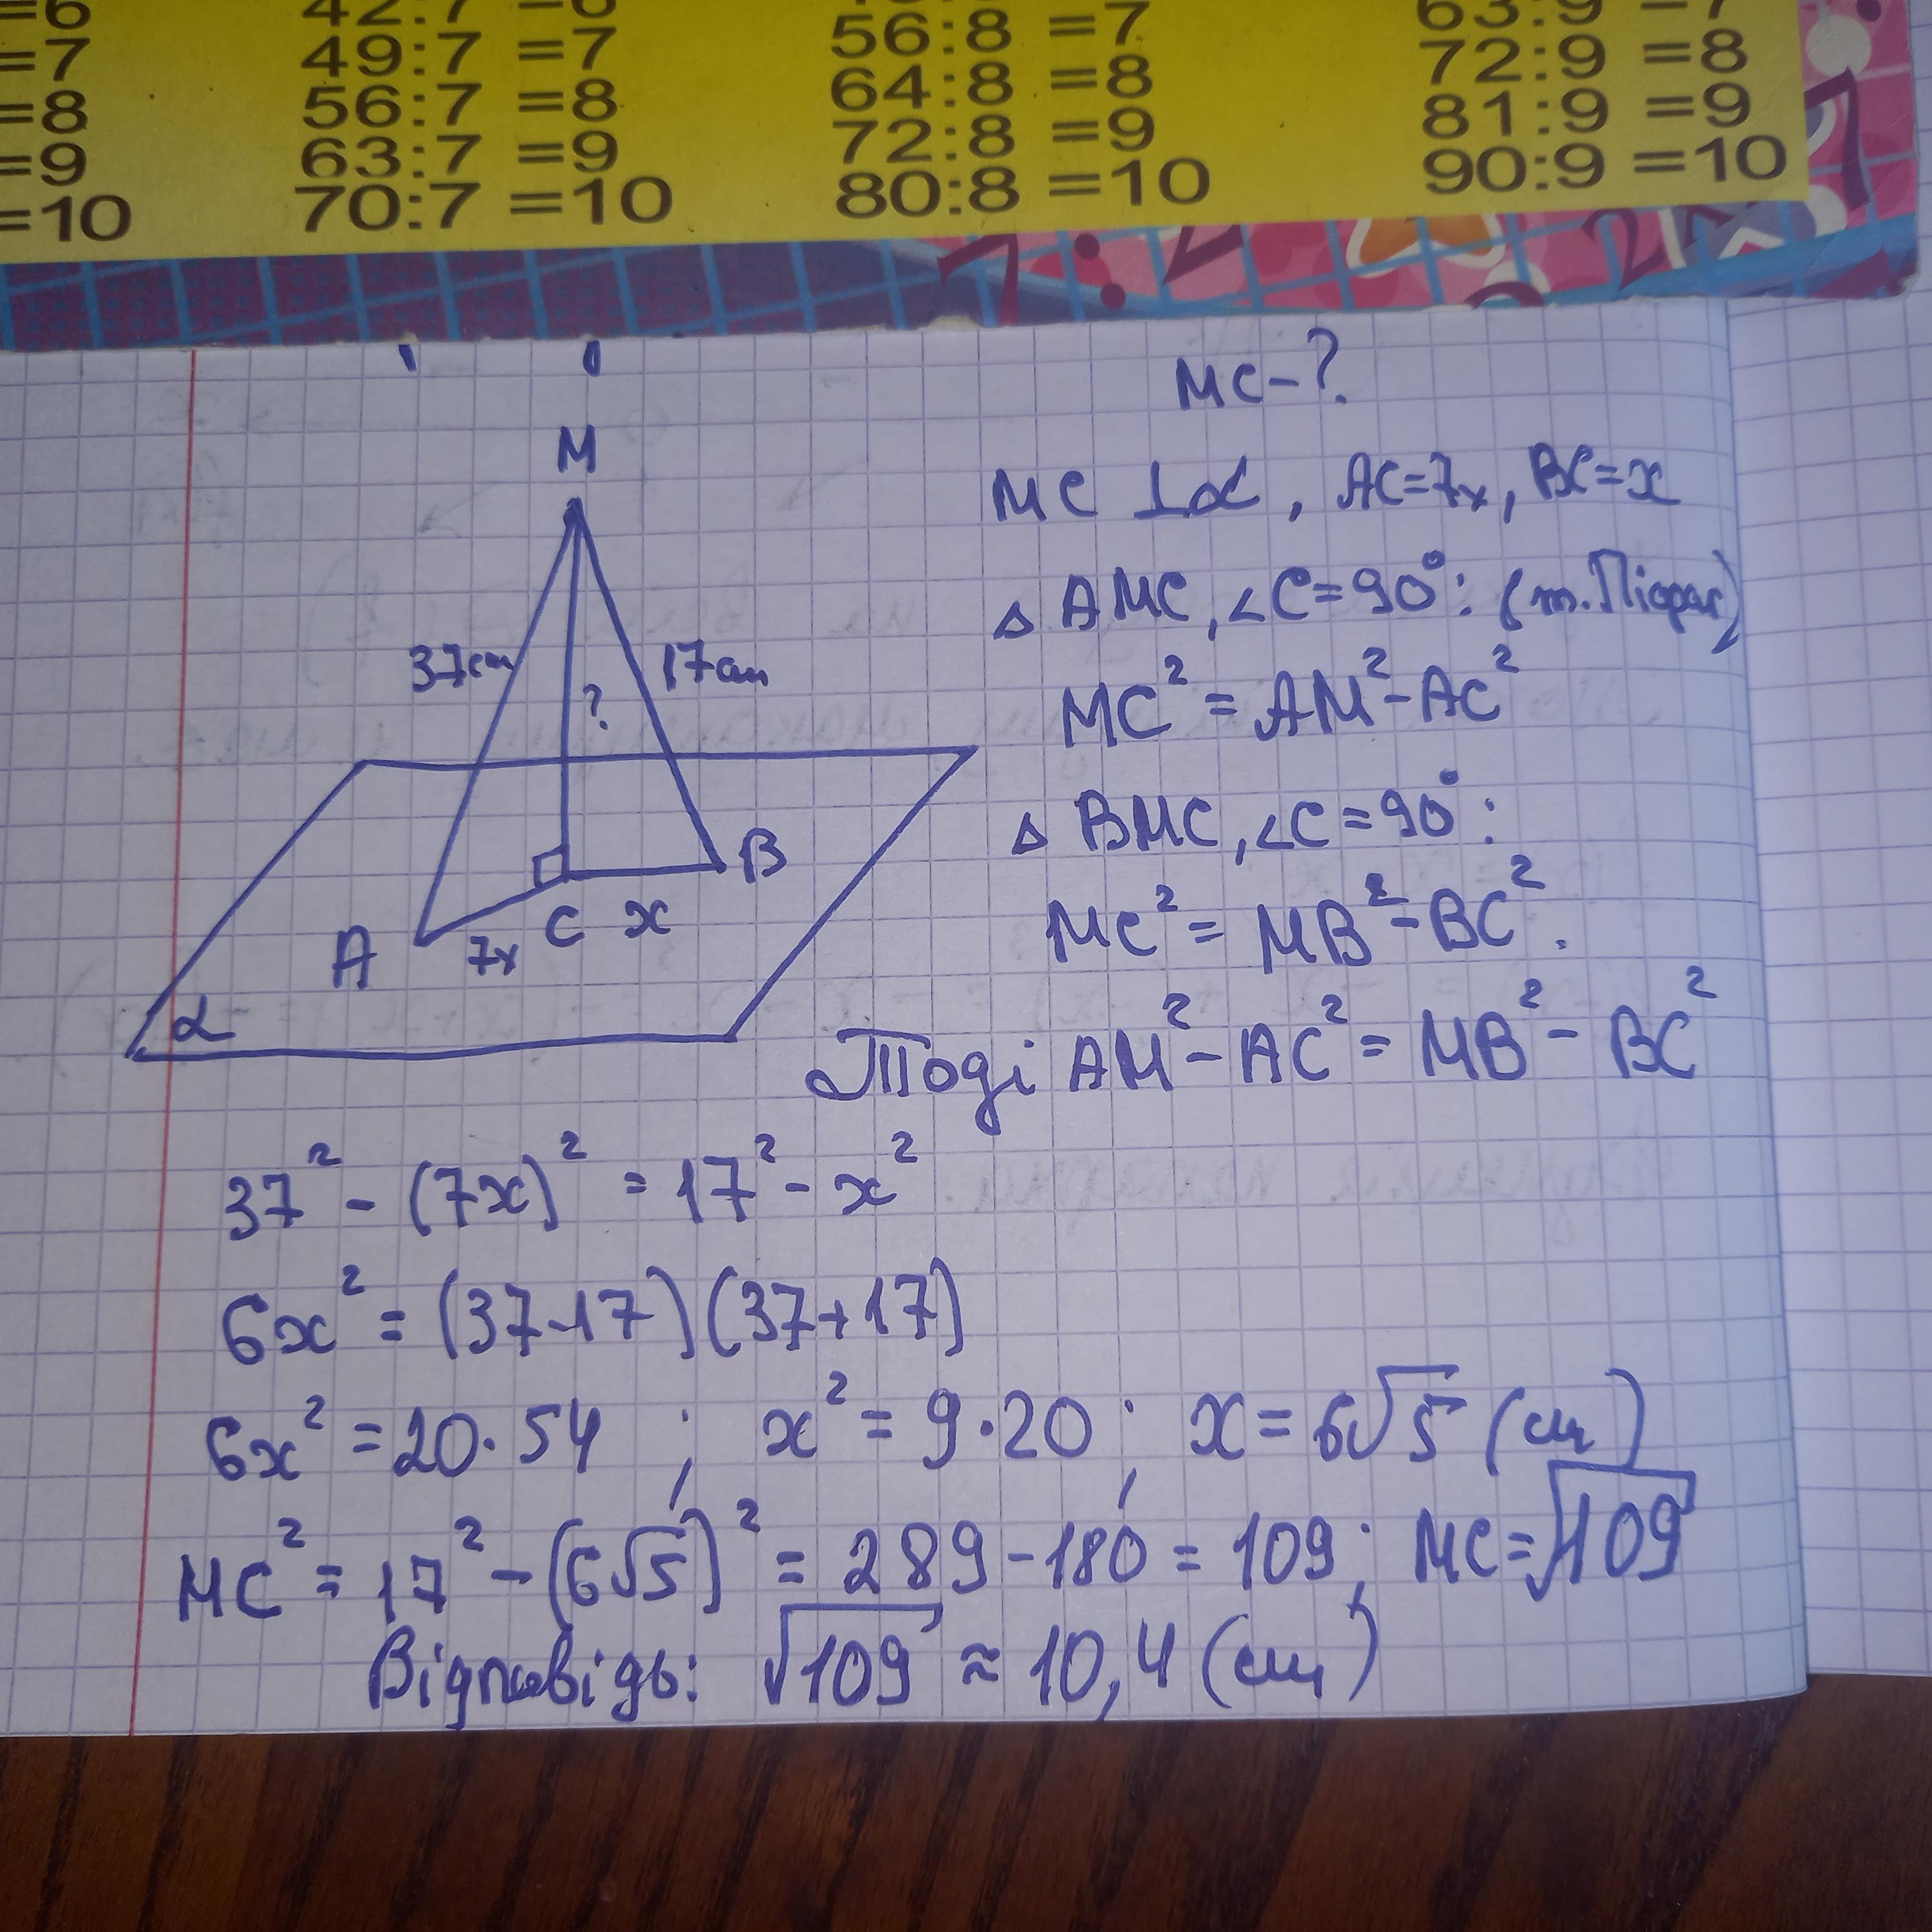 =6 42:7 =6 63:9 =7
=7 49:7 =7 56:8 =7 72:9 =8
=8 56:7 =8 64:8 =8 81:9 =9
=9 63:7 =9 72:8 =9 90:9 =10
=10 70:7 =10 80:8 =10
MC-?
M
MC ⊥ α, AC=7x, BC=x
△ AMC, ∠C=90°: (т. Піфаг)
37см ? 17см
MC² = AM²-AC²
△ BMC, ∠C=90°:
B
A 7x C x
MC² = MB²-BC².
α
Тоді AM²-AC² = MB²-BC²
37² - (7x)² = 17² - x²
6x² = (37-17)(37+17)
6x² = 20·54 ; x² = 9·20 ; x = 6√5 (см)
MC² = 17² - (6√5)² = 289-180 = 109; MC=√109
Відповідь: √109 ≈ 10,4 (см)